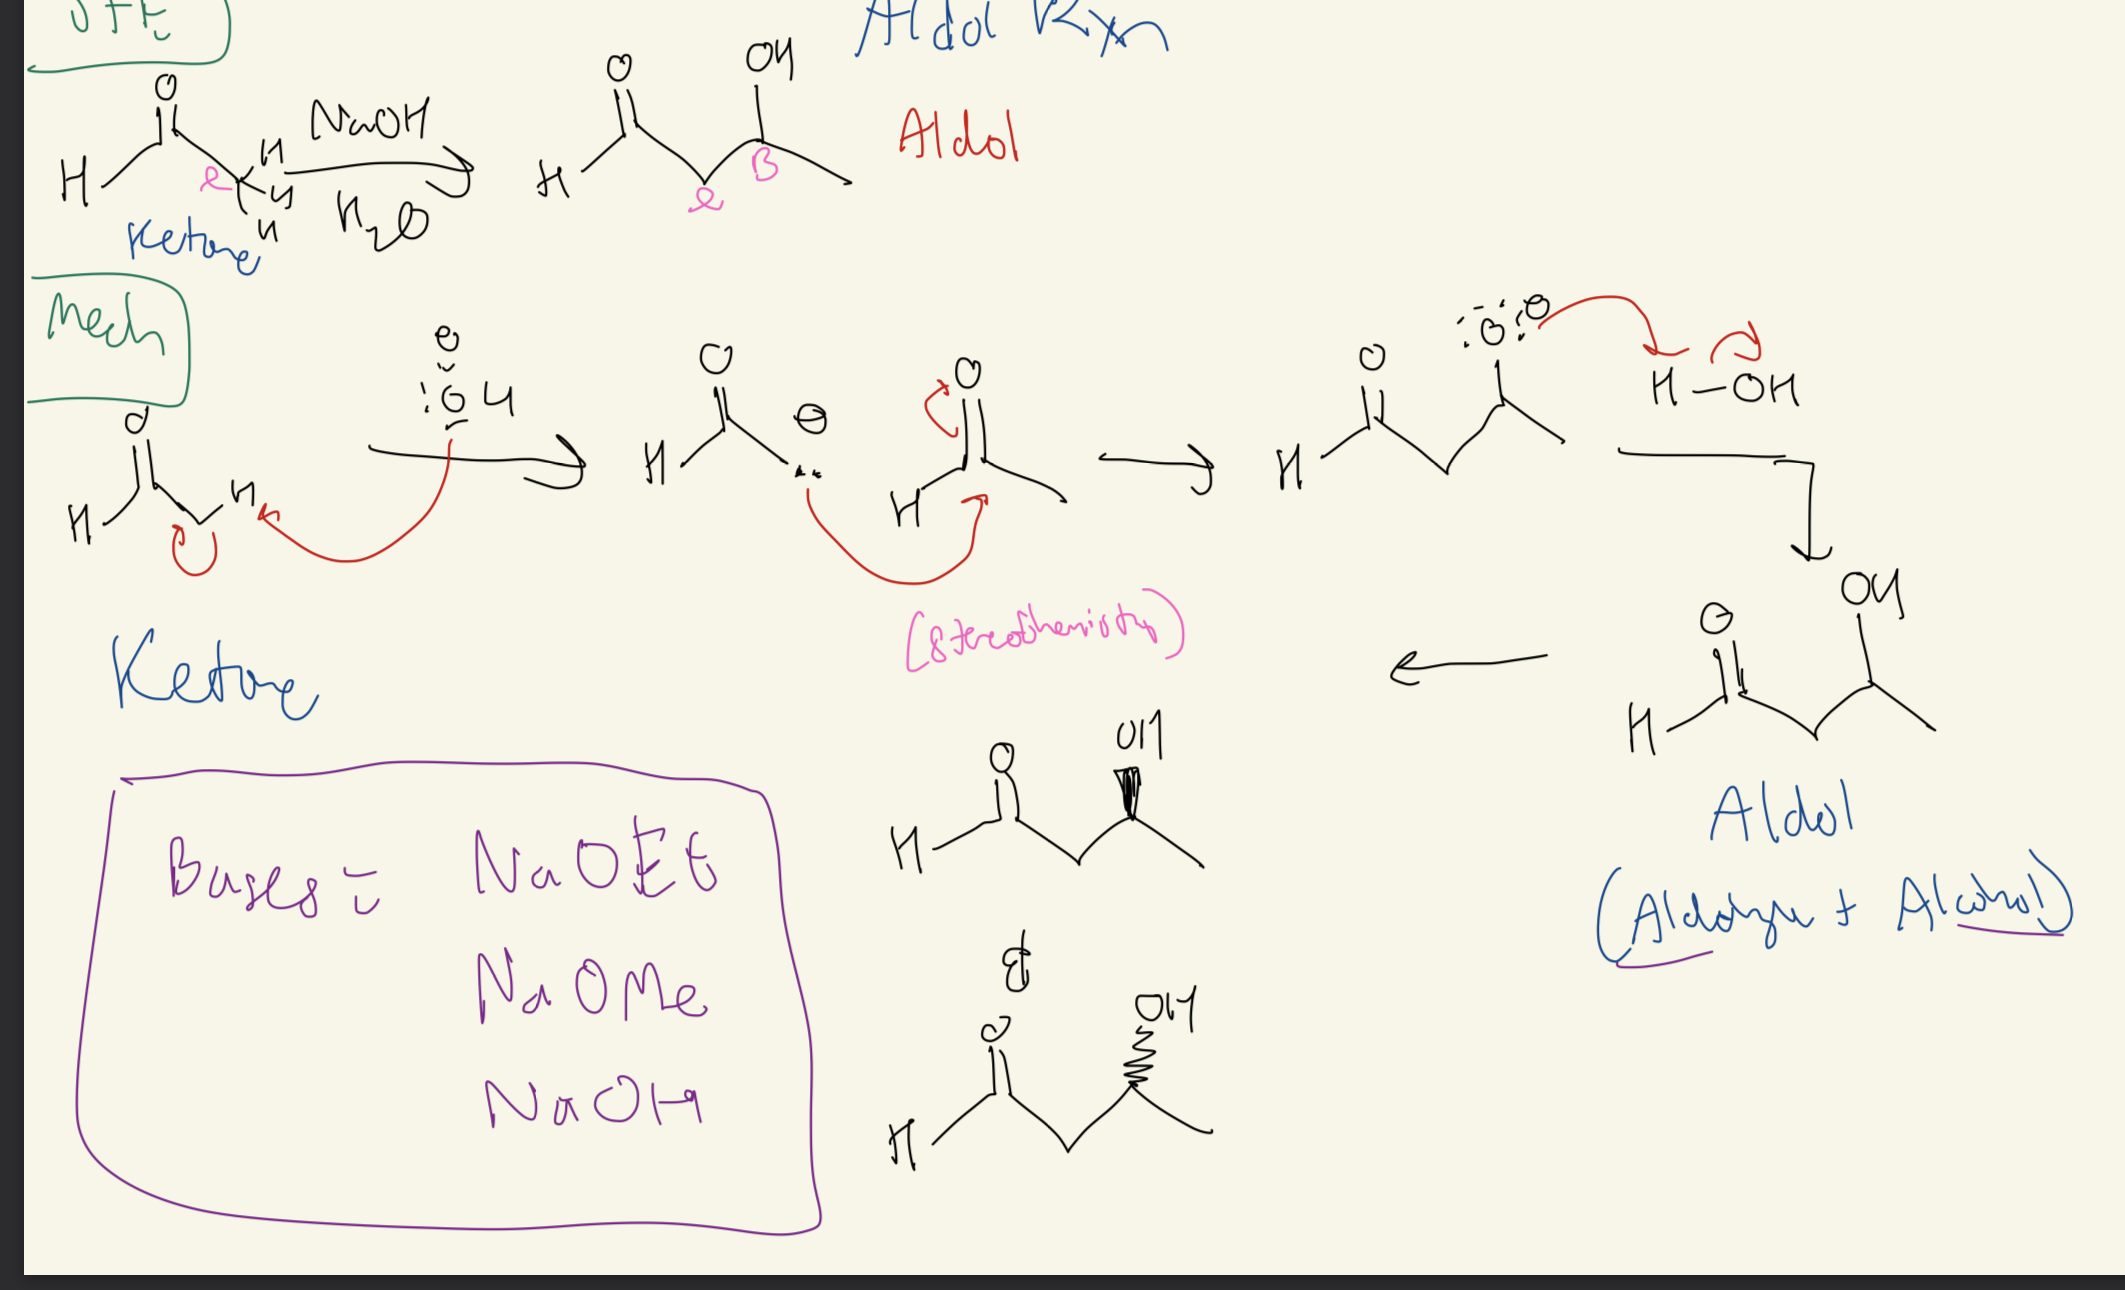 Aldol Rxn
O
OH
O
NaOH
Aldol
H
H
H
H
H
α
β
α
H2O
Ketone
Mech
⊖
:O:⊖
:OH
O
O
O
O
⊖
H-OH
H
H
H
H
H
OH
O
(Stereochemistry)
Ketone
H
OH
O
Aldol
H
Bases: NaOEt
(Aldehyde + Alcohol)
NaOMe
&
OH
O
NaOH
H